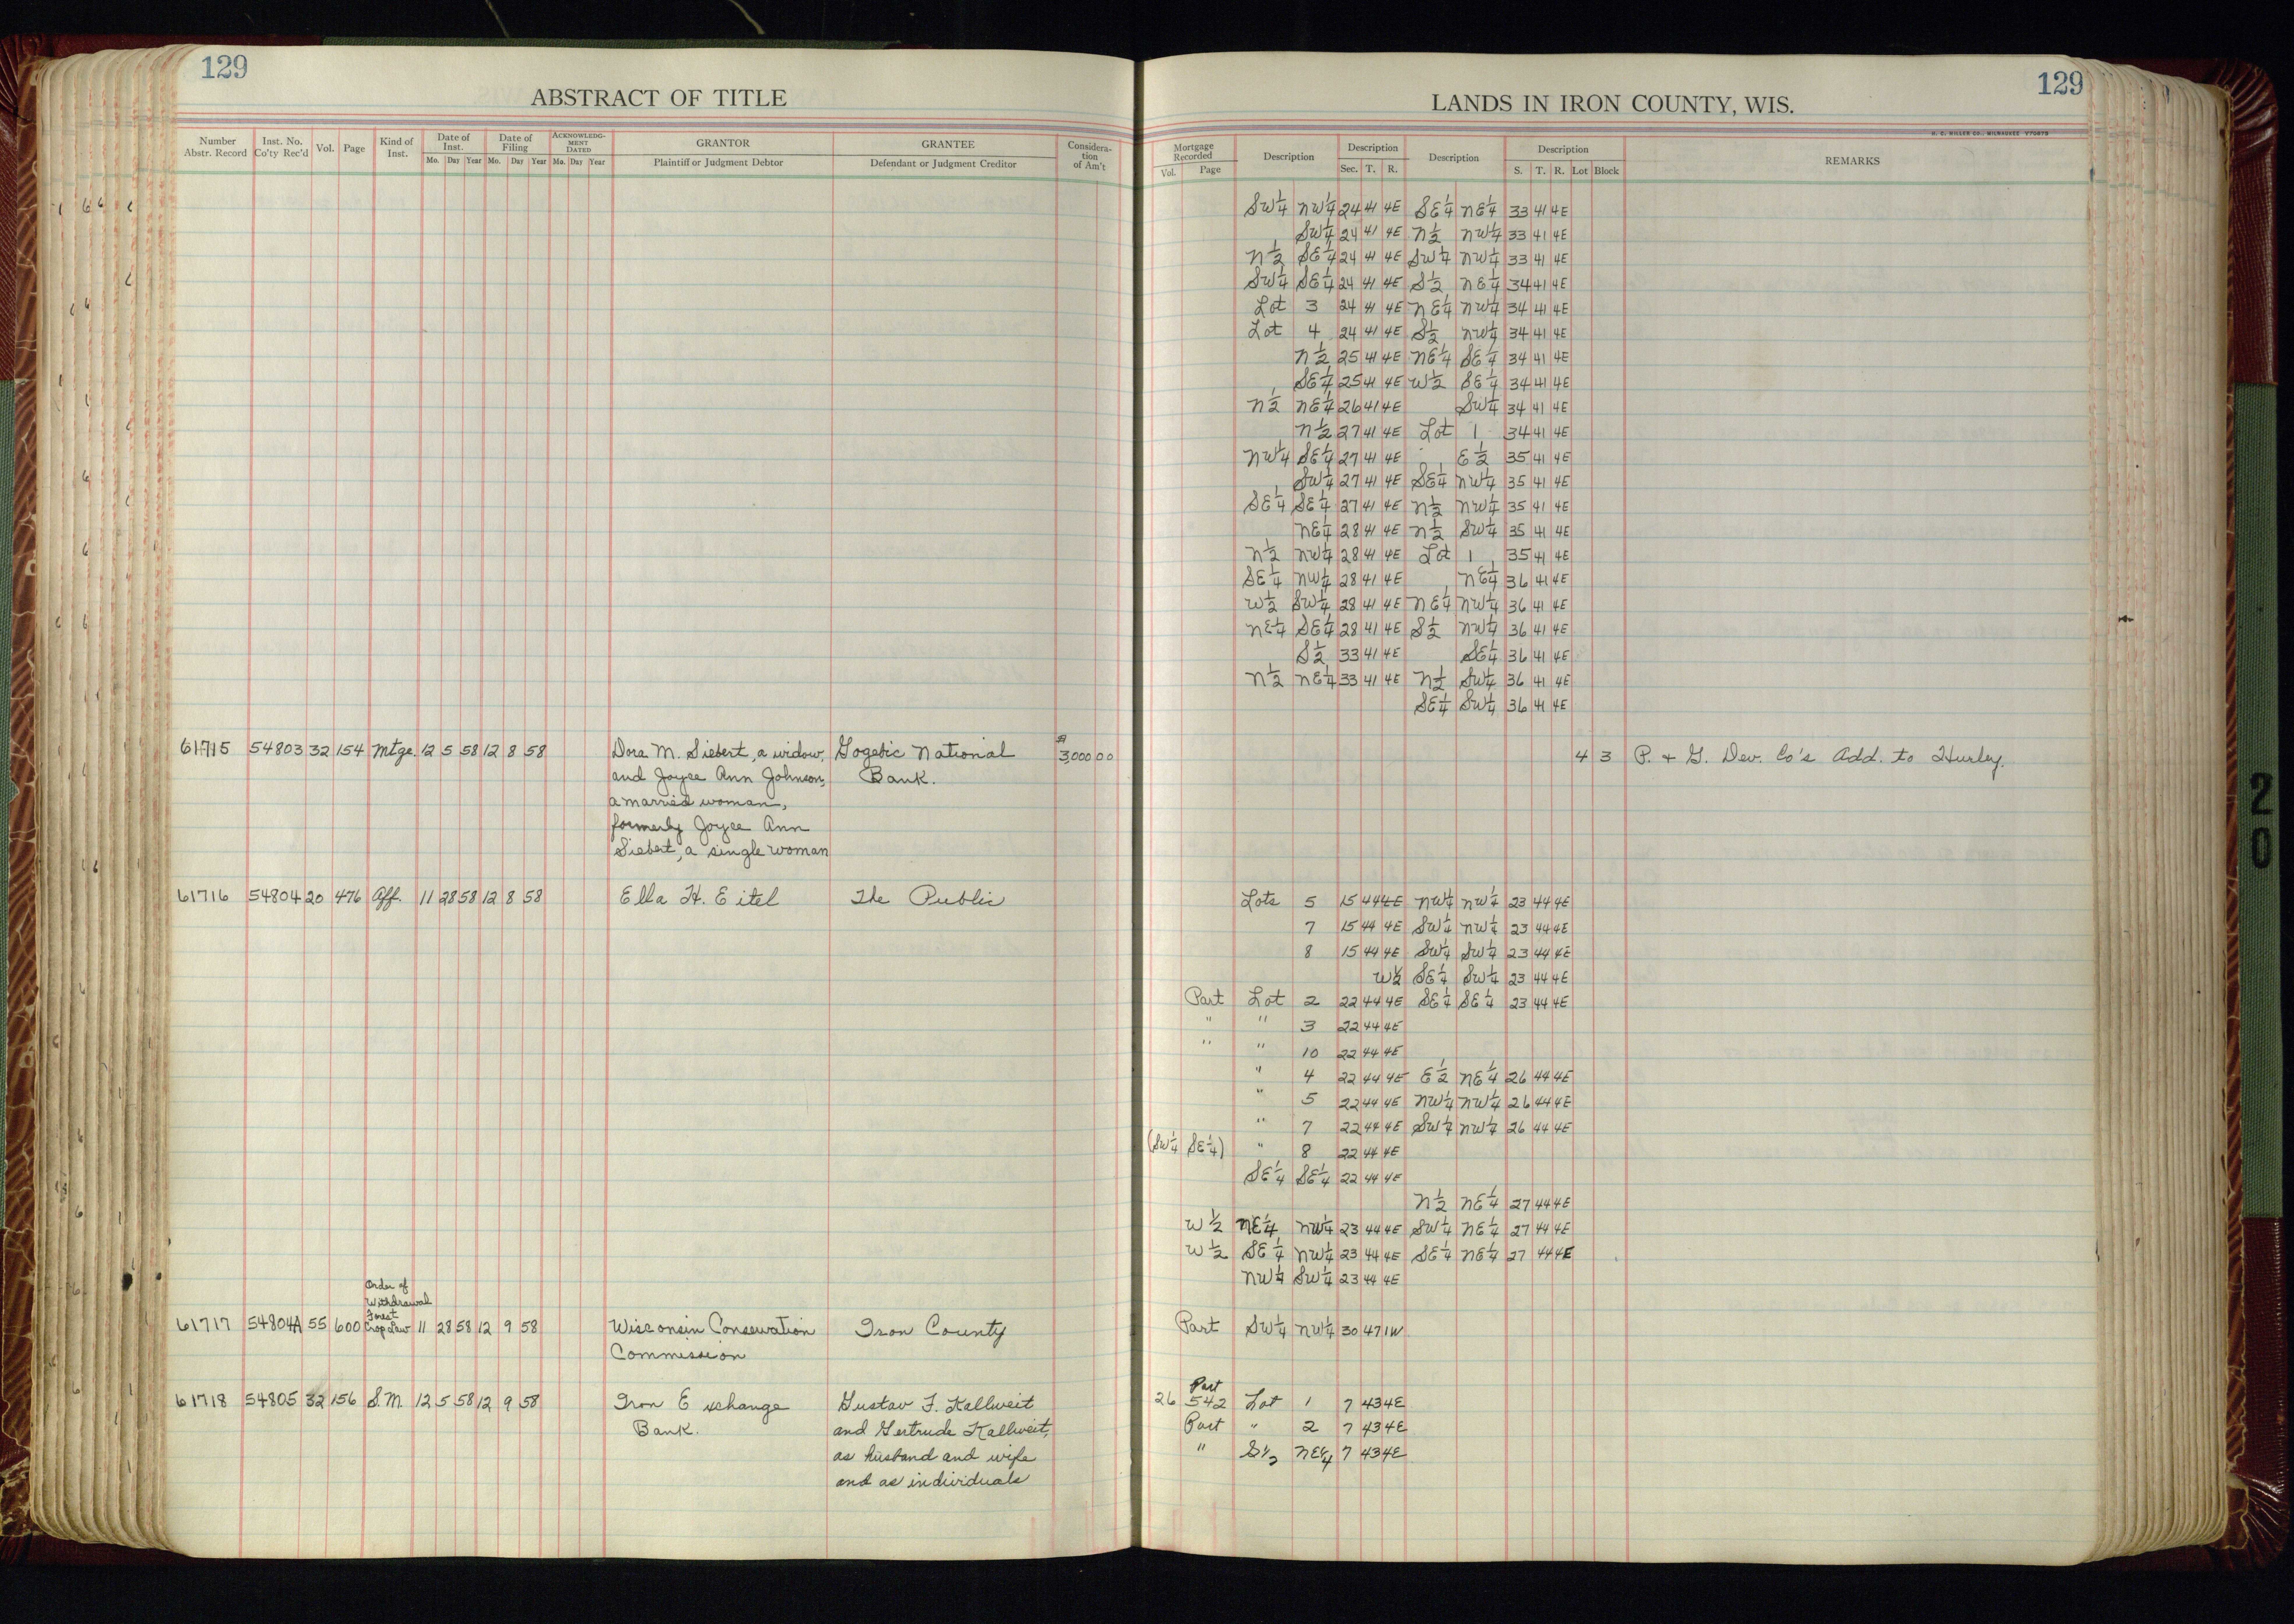 129
ABSTRACT OF TITLE
Number Abstr. Record | Inst. No. Co'ty Rec'd | Vol. | Page | Kind of Inst. | Date of Inst. Mo. Day Year | Date of Filing Mo. Day Year | ACKNOWLEDGMENT DATED Mo. Day Year | GRANTOR Plaintiff or Judgment Debtor | GRANTEE Defendant or Judgment Creditor | Consideration of Am't
61715 54803 32 154 Mtge. 12 5 58 12 8 58 Dora M. Siebert, a widow, Gogebic National $3,000 00
and Joyce Ann Johnson, Bank.
a married woman,
formerly Joyce Ann
Siebert, a single woman
61716 54804 20 476 Aff. 11 28 58 12 8 58 Ella H. Eitel The Public
Order of
Withdrawal
Forest
61717 54804A 55 600 Crop Law 11 28 58 12 9 58 Wisconsin Conservation Iron County
Commission
61718 54805 32 156 S.M. 12 5 58 12 9 58 Iron Exchange Gustav F. Kallweit
Bank. and Gertrude Kallweit,
as husband and wife
and as individuals
129
LANDS IN IRON COUNTY, WIS.
H. C. MILLER CO., MILWAUKEE V70875
Mortgage Recorded Vol. Page | Description | Description Sec. T. R. | Description | Description S. T. R. Lot Block | REMARKS
SW¼ NW¼ 24 41 4E SE¼ NE¼ 33 41 4E
SW¼ 24 41 4E N½ NW¼ 33 41 4E
N½ SE¼ 24 41 4E SW¼ NW¼ 33 41 4E
SW¼ SE¼ 24 41 4E S½ NE¼ 34 41 4E
Lot 3 24 41 4E NE¼ NW¼ 34 41 4E
Lot 4 24 41 4E S½ NW¼ 34 41 4E
N½ 25 41 4E NE¼ SE¼ 34 41 4E
SE¼ 25 41 4E W½ SE¼ 34 41 4E
N½ NE¼ 26 41 4E SW¼ 34 41 4E
N½ 27 41 4E Lot 1 34 41 4E
NW¼ SE¼ 27 41 4E E½ 35 41 4E
SW¼ 27 41 4E SE¼ NW¼ 35 41 4E
SE¼ SE¼ 27 41 4E N½ NW¼ 35 41 4E
NE¼ 28 41 4E N½ SW¼ 35 41 4E
N½ NW¼ 28 41 4E Lot 1 35 41 4E
SE¼ NW¼ 28 41 4E NE¼ 36 41 4E
W½ SW¼ 28 41 4E NE¼ NW¼ 36 41 4E
NE¼ SE¼ 28 41 4E S½ NW¼ 36 41 4E
S½ 33 41 4E SE¼ 36 41 4E
N½ NE¼ 33 41 4E N½ SW¼ 36 41 4E
SE¼ SW¼ 36 41 4E
4 3 P. & G. Dev. Co's Add. to Hurley.
Lots 5 15 44 4E NW¼ NW¼ 23 44 4E
7 15 44 4E SW¼ NW¼ 23 44 4E
8 15 44 4E SW¼ SW¼ 23 44 4E
W½ SE¼ SW¼ 23 44 4E
Part Lot 2 22 44 4E SE¼ SE¼ 23 44 4E
" " 3 22 44 4E
" " 10 22 44 4E
" 4 22 44 4E E½ NE¼ 26 44 4E
" 5 22 44 4E NW¼ NW¼ 26 44 4E
" 7 22 44 4E SW¼ NW¼ 26 44 4E
(SW¼ SE¼) " 8 22 44 4E
SE¼ SE¼ 22 44 4E
N½ NE¼ 27 44 4E
W½ NE¼ NW¼ 23 44 4E SW¼ NE¼ 27 44 4E
W½ SE¼ NW¼ 23 44 4E SE¼ NE¼ 27 44 4E
NW¼ SW¼ 23 44 4E
Part SW¼ NW¼ 30 47 1W
Part
26 542 Lot 1 7 43 4E
Part " 2 7 43 4E
" S½ NE¼ 7 43 4E
20